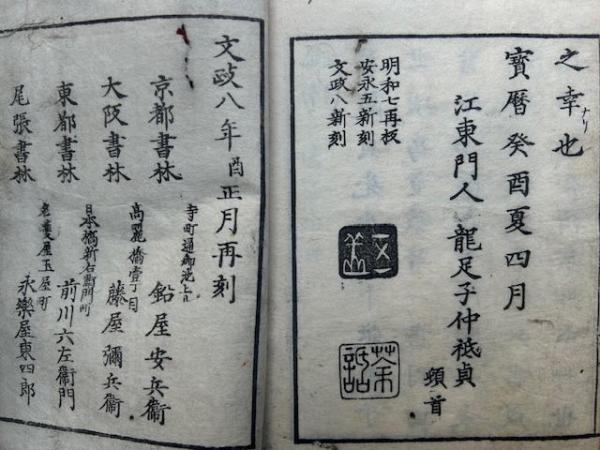 之幸也
ナリ
寶曆癸酉夏四月
江東門人 龍足子仲祗貞
頓首
明和七再板
安永五新刻
文政八新刻
文政八年酉正月再刻
京都書林
寺町通御池上ル
鉛屋安兵衞
大阪書林
高麗橋壹丁目
藤屋彌兵衞
東都書林
日本橋新右衞門町
前川六左衞門
尾張書林
玉屋町
永樂屋東四郎